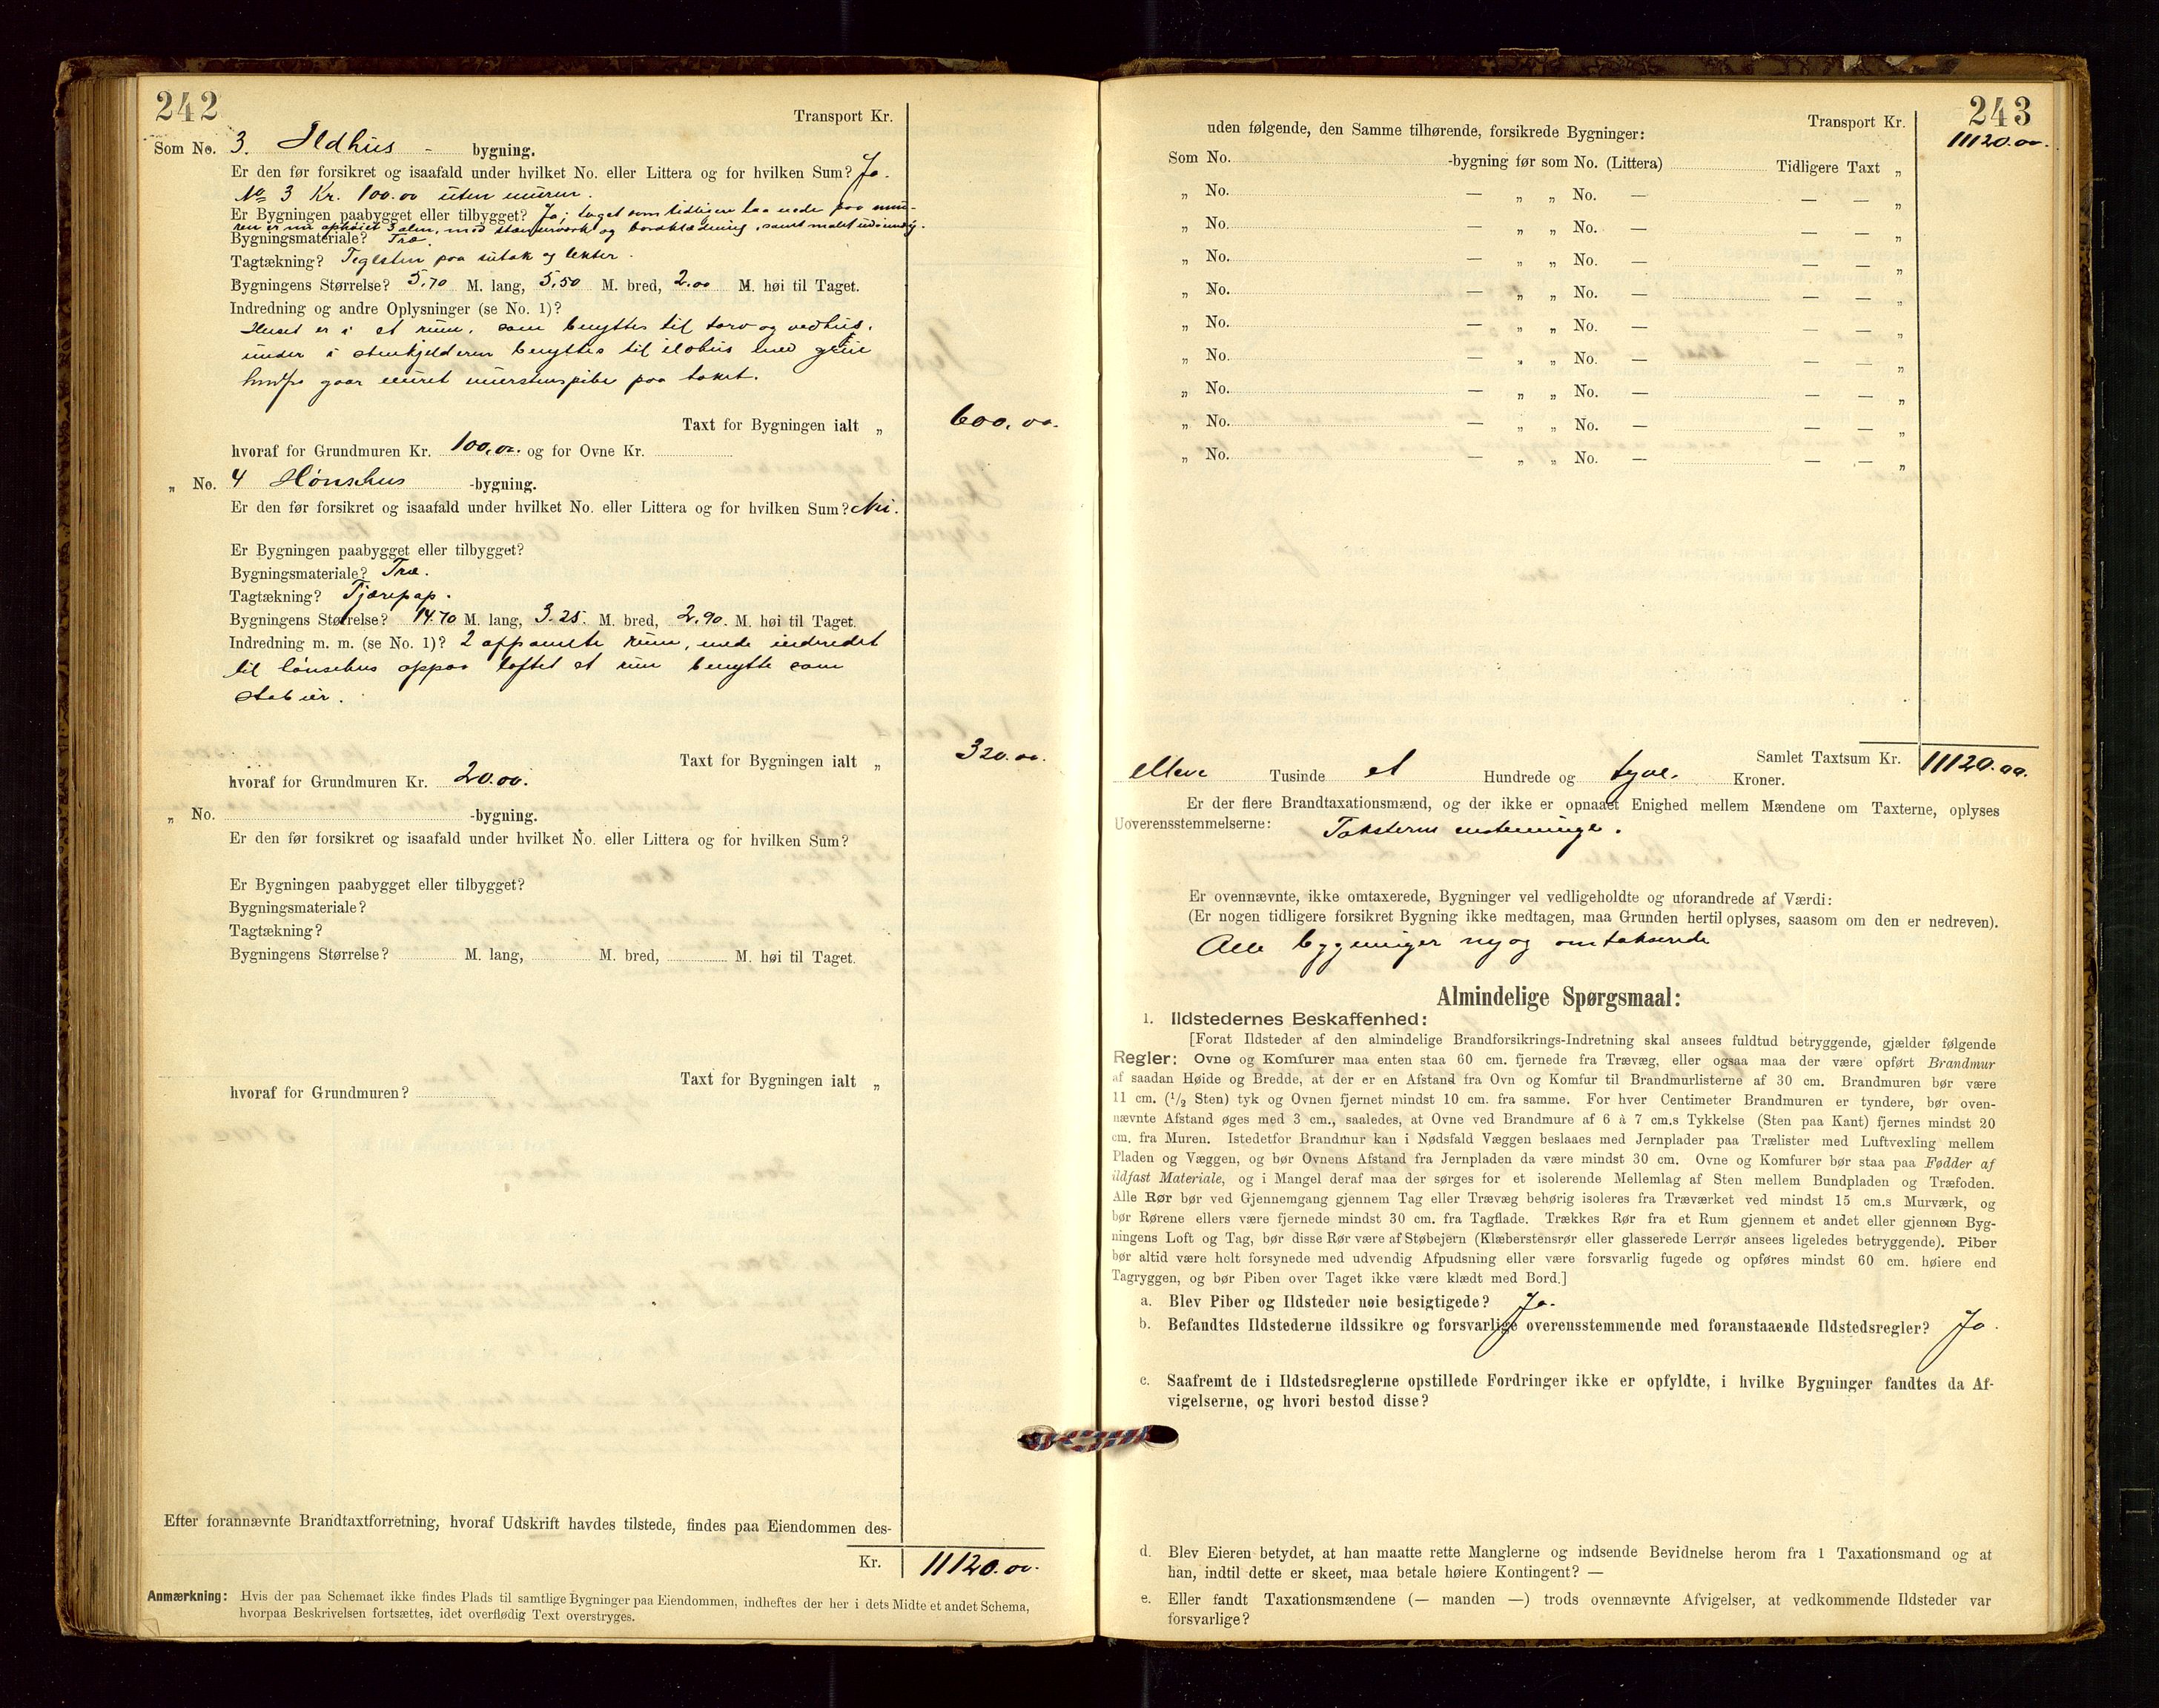 242
Transport Kr.
Som No. 3. Ildhus - bygning.
Er den før forsikret og isaafald under hvilket No. eller Littera og for hvilken Sum? Ja.
No 3 Kr. 100.00 uten muren.
Er Bygningen paabygget eller tilbygget? Ja; taget som tidligere laa nede paa mu-
ren er nu ophøiet 3 alen, med stenderverk og bordklædning, samt malet udvendig.
Bygningsmateriale? Træ.
Tagtækning? Teglsten paa sutak og lekter.
Bygningens Størrelse? 5,70 M. lang, 5,50 M. bred, 2.00 M. høi til Taget.
Indredning og andre Oplysninger (se No. 1)?
Huset er i et rum, som benyttes til torv og vedhus.
under i stenkjelderen benyttes til ildhus med grue
hvorfra gaar muret murstenspibe paa taket.
Taxt for Bygningen ialt „ 600,00.
hvoraf for Grundmuren Kr. 100,00. og for Ovne Kr.
„ No. 4 Hønsehus -bygning.
Er den før forsikret og isaafald under hvilket No. eller Littera og for hvilken Sum? Nei.
Er Bygningen paabygget eller tilbygget?
Bygningsmateriale? Træ.
Tagtækning? Tjærepap.
Bygningens Størrelse? 14.70 M. lang, 3.25. M. bred, 2,90. M. høi til Taget.
Indredning m. m. (se No. 1)? 2 rum, nede indredet
til hønsehus oppaa loftet et rum benytte som
stabur.
Taxt for Bygningen ialt „ 320.00.
hvoraf for Grundmuren Kr. 20.00.
„ No. -bygning.
Er den før forsikret og isaafald under hvilket No. eller Littera og for hvilken Sum?
Er Bygningen paabygget eller tilbygget?
Bygningsmateriale?
Tagtækning?
Bygningens Størrelse? M. lang, M. bred, M. høi til Taget.
Taxt for Bygningen ialt „
hvoraf for Grundmuren?
Efter forannævnte Brandtaxtforretning, hvoraf Udskrift havdes tilstede, findes paa Eiendommen des-
Kr. 11120.00.
Anmærkning: Hvis der paa Schemaet ikke findes Plads til samtlige Bygninger paa Eiendommen, indheftes der her i dets Midte et andet Schema,
hvorpaa Beskrivelsen fortsættes, idet overflødig Text overstryges.
243
Transport Kr. 11120.00.
uden følgende, den Samme tilhørende, forsikrede Bygninger:
Som No. -bygning før som No. (Littera) Tidligere Taxt „
„ No. — „ „ No. — — — „
„ No. — „ „ No. — — — „
„ No. — „ „ No. — — — „
„ No. — „ „ No. — — — „
„ No. — „ „ No. — — — „
„ No. — „ „ No. — — — „
„ No. — „ „ No. — — — „
„ No. — „ „ No. — — — „
„ No. — „ „ No. — — — „
Samlet Taxtsum Kr. 11120.00.
elleve Tusinde et Hundrede og tyve. Kroner.
Er der flere Brandtaxationsmænd, og der ikke er opnaaet Enighed mellem Mændene om Taxterne, oplyses
Uoverensstemmelserne: Taksterne enstemmige.
Er ovennævnte, ikke omtaxerede, Bygninger vel vedligeholdte og uforandrede af Værdi:
(Er nogen tidligere forsikret Bygning ikke medtagen, maa Grunden hertil oplyses, saasom om den er nedreven).
Alle bygninger ny og omtakserede
Almindelige Spørgsmaal:
1. Ildstedernes Beskaffenhed:
[Forat Ildsteder af den almindelige Brandforsikrings-Indretning skal ansees fuldtud betryggende, gjælder følgende
Regler: Ovne og Komfurer maa enten staa 60 cm. fjernede fra Trævæg, eller ogsaa maa der være opført Brandmur
af saadan Høide og Bredde, at der er en Afstand fra Ovn og Komfur til Brandmurlisterne af 30 cm. Brandmuren bør være
11 cm. (1/2 Sten) tyk og Ovnen fjernet mindst 10 cm. fra samme. For hver Centimeter Brandmuren er tyndere, bør oven-
nævnte Afstand øges med 3 cm., saaledes, at Ovne ved Brandmure af 6 à 7 cm.s Tykkelse (Sten paa Kant) fjernes mindst 20
cm. fra Muren. Istedetfor Brandmur kan i Nødsfald Væggen beslaaes med Jernplader paa Trælister med Luftvexling mellem
Pladen og Væggen, og bør Ovnens Afstand fra Jernpladen da være mindst 30 cm. Ovne og Komfurer bør staa paa Fødder af
ildfast Materiale, og i Mangel deraf maa der sørges for et isolerende Mellemlag af Sten mellem Bundpladen og Træfoden.
Alle Rør bør ved Gjennemgang gjennem Tag eller Trævæg behørig isoleres fra Træværket ved mindst 15 cm.s Murværk, og
bør Rørene ellers være fjernede mindst 30 cm. fra Tagflade. Trækkes Rør fra et Rum gjennem et andet eller gjennem Byg-
ningens Loft og Tag, bør disse Rør være af Støbejern (Klæberstensrør eller glasserede Lerrør ansees ligeledes betryggende). Piber
bør altid være helt forsynede med udvendig Afpudsning eller være forsvarlig fugede og opføres mindst 60 cm. høiere end
Tagryggen, og bør Piben over Taget ikke være klædt med Bord.]
a. Blev Piber og Ildsteder nøie besigtigede? Ja.
b. Befandtes Ildstederne ildssikre og forsvarlige overensstemmende med foranstaaende Ildstedsregler? Ja.
c. Saafremt de i Ildstedsreglerne opstillede Fordringer ikke er opfyldte, i hvilke Bygninger fandtes da Af-
vigelserne, og hvori bestod disse?
d. Blev Eieren betydet, at han maatte rette Manglerne og indsende Bevidnelse herom fra 1 Taxationsmand og at
han, indtil dette er skeet, maa betale høiere Kontingent? —
e. Eller fandt Taxationsmændene (— manden —) trods ovennævnte Afvigelser, at vedkommende Ildsteder var
forsvarlige?